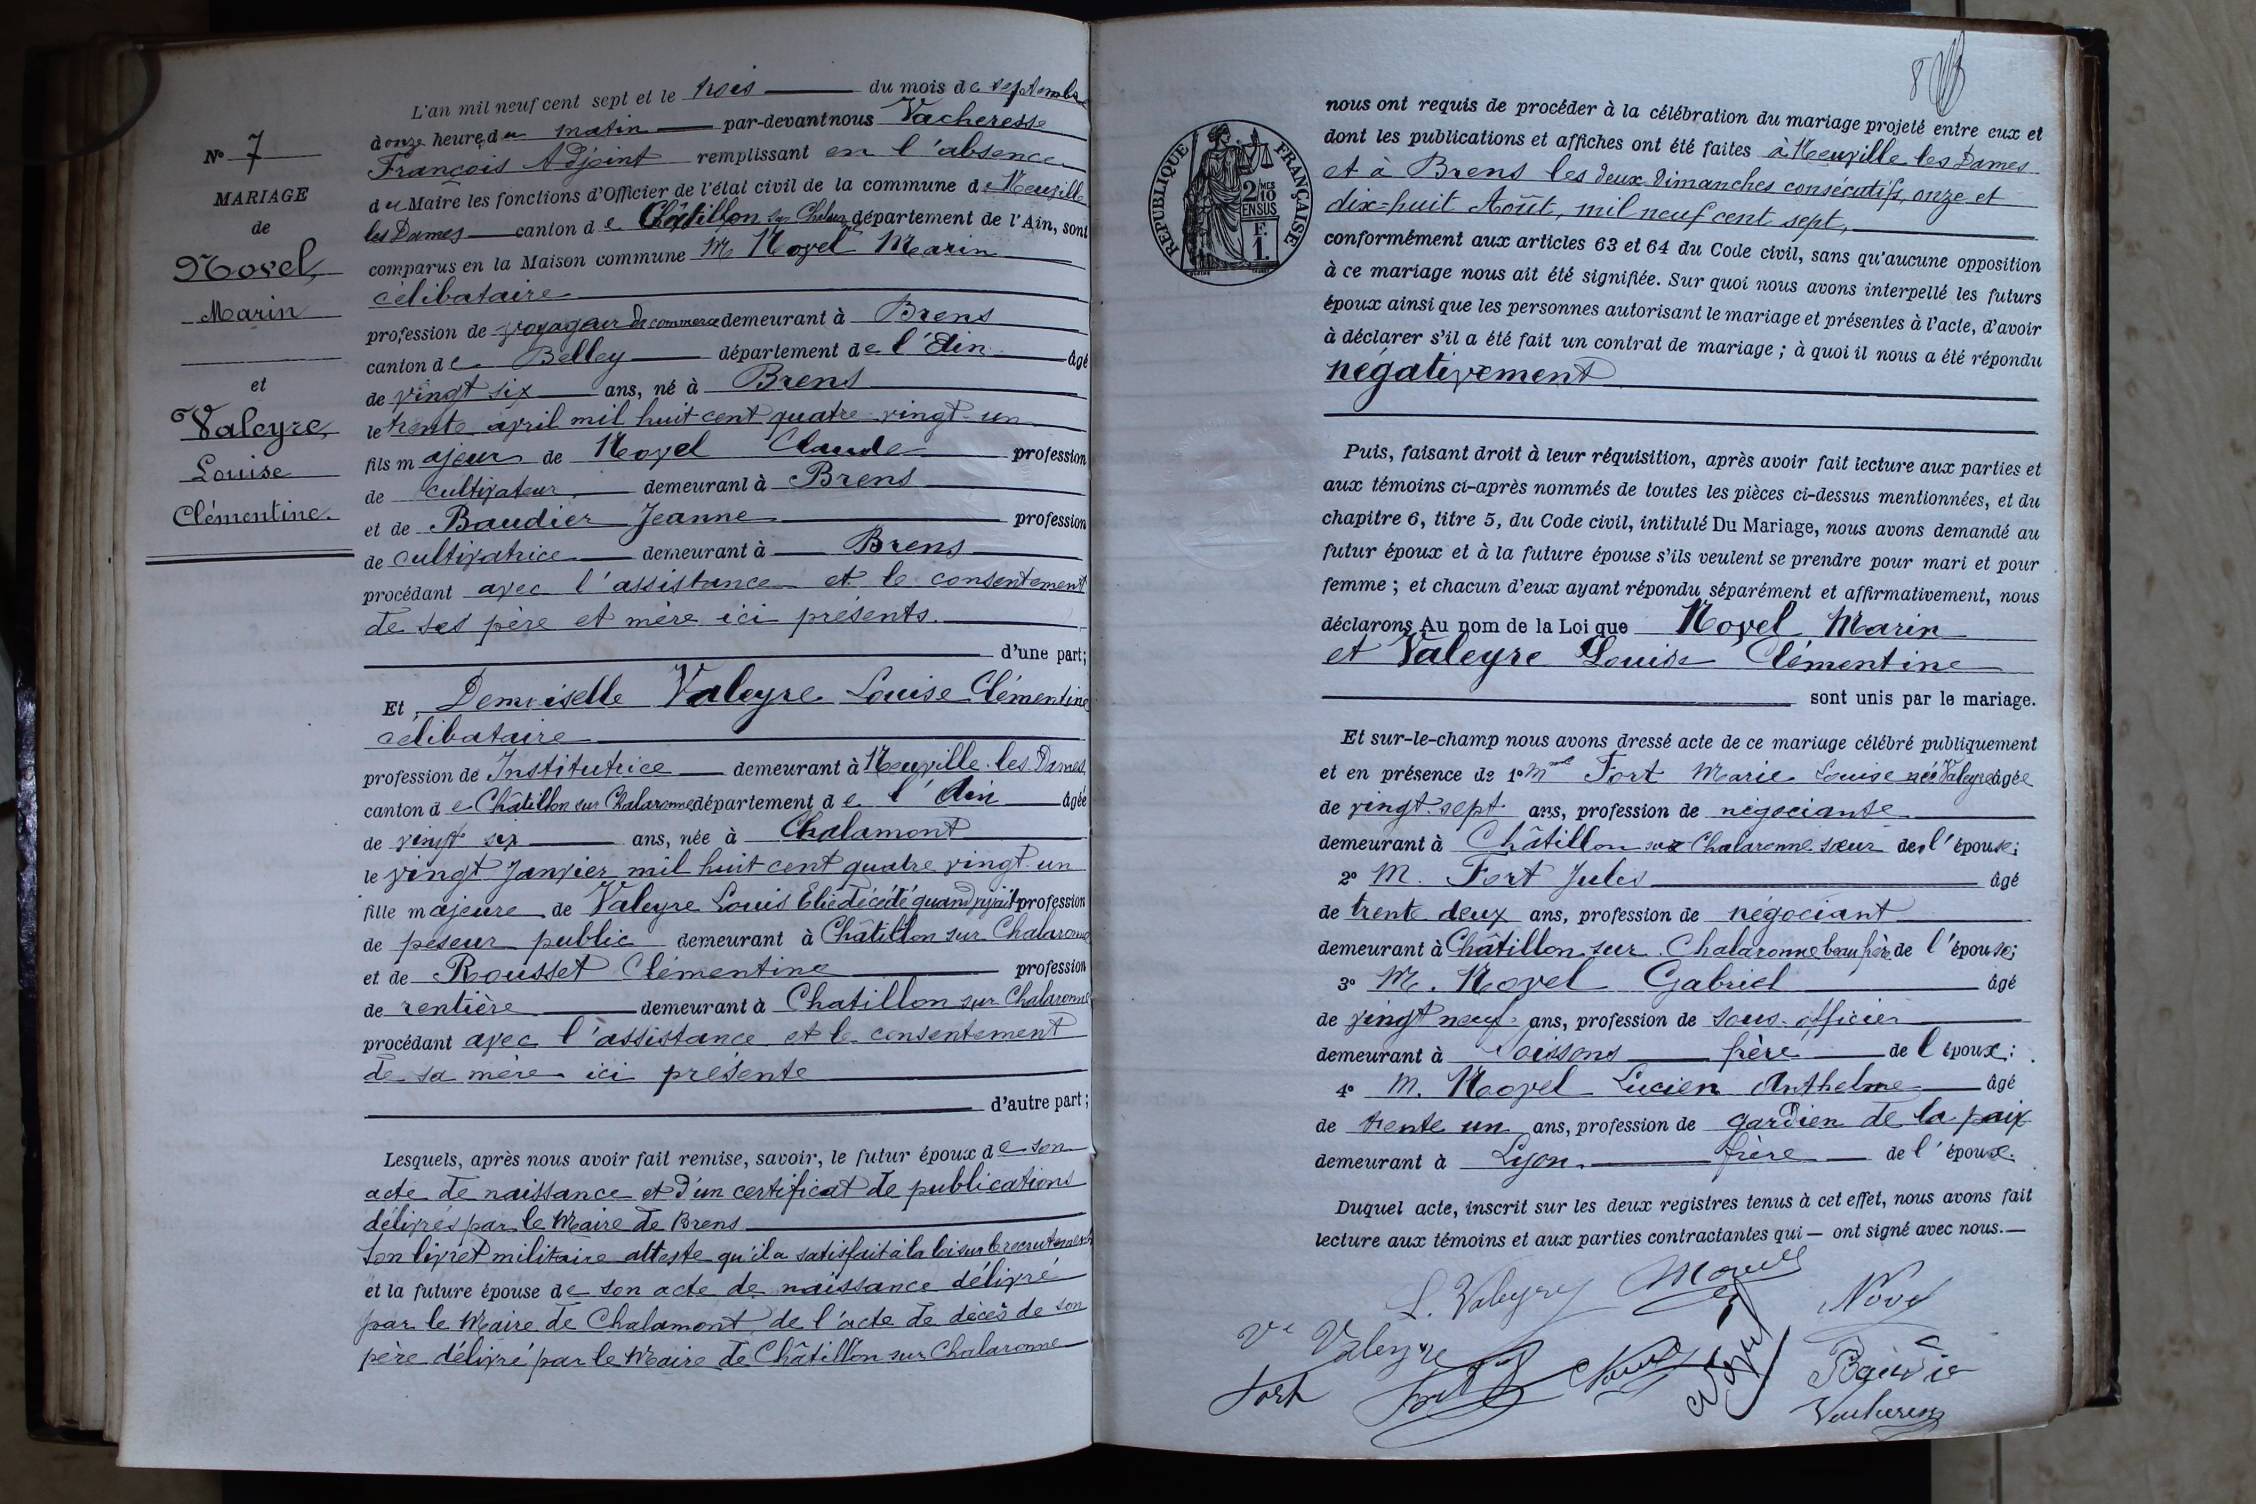 L'an mil neuf cent sept et le trois du mois de septembre
à onze heure du matin par-devant nous Vacheresse
François Adjoint remplissant en l'absence
du Maire les fonctions d'Officier de l'état civil de la commune de Neuville
les Dames canton de Châtillon sur Chalar. département de l'Ain, sont
comparus en la Maison commune M Novel Marin
célibataire
profession de voyageur de commerce demeurant à Brens
canton de Belley département de l'Ain âgé
de vingt six ans, né à Brens
le trente avril mil huit cent quatre vingt-un
fils majeur de Novel Claude profession
de cultivateur, demeurant à Brens
et de Baudier Jeanne profession
de cultivatrice demeurant à Brens
procédant avec l'assistance et le consentement
de ses père et mère ici présents.
d'une part;
Et, Demoiselle Valeyre Louise Clémentine
célibataire
profession de Institutrice demeurant à Neuville-les Dames,
canton de Châtillon sur Chalaronne département de l'Ain âgée
de vingt six ans, née à Chalamont
le vingt Janvier mil huit cent quatre vingt-un
fille majeure de Valeyre Louis Elie décédé quand vivait profession
de peseur public demeurant à Châtillon sur Chalaronne
et de Rousset Clémentine profession
de rentière demeurant à Chatillon sur Chalaronne
procédant avec l'assistance et le consentement
de sa mère ici présente
d'autre part;
Lesquels, après nous avoir fait remise, savoir, le futur époux de son
acte de naissance et d'un certificat de publications
délivrés par le Maire de Brens
Son livret militaire atteste qu'il a satisfait à la loi sur le recrutement
et la future épouse de son acte de naissance délivré
par le Maire de Chalamont, de l'acte de décès de son
père délivré par le Maire de Châtillon sur Chalaronne
N° 7
MARIAGE
de
Novel,
Marin
et
Valeyre,
Louise
Clémentine.
8
nous ont requis de procéder à la célébration du mariage projeté entre eux et
dont les publications et affiches ont été faites à Neuville les Dames
et à Brens les deux Dimanches consécutifs, onze et
dix-huit Août, mil neuf cent sept,
conformément aux articles 63 et 64 du Code civil, sans qu'aucune opposition
à ce mariage nous ait été signifiée. Sur quoi nous avons interpellé les futurs
époux ainsi que les personnes autorisant le mariage et présentes à l'acte, d'avoir
à déclarer s'il a été fait un contrat de mariage; à quoi il nous a été répondu
négativement
Puis, faisant droit à leur réquisition, après avoir fait lecture aux parties et
aux témoins ci-après nommés de toutes les pièces ci-dessus mentionnées, et du
chapitre 6, titre 5, du Code civil, intitulé Du Mariage, nous avons demandé au
futur époux et à la future épouse s'ils veulent se prendre pour mari et pour
femme; et chacun d'eux ayant répondu séparément et affirmativement, nous
déclarons Au nom de la Loi que Novel Marin
et Valeyre Louise Clémentine
sont unis par le mariage.
Et sur-le-champ nous avons dressé acte de ce mariage célébré publiquement
et en présence de 1° Mme Fort Marie Louise née Valeyre âgée
de vingt-sept ans, profession de négociante
demeurant à Châtillon sur Chalaronne sœur de l'épouse;
2° M. Fort Jules âgé
de trente deux ans, profession de négociant
demeurant à Châtillon sur Chalaronne beau frère de l'épouse;
3° M. Novel Gabriel âgé
de vingt neuf ans, profession de sous-officier
demeurant à Soissons frère de l'époux;
4° M. Novel Lucien Anthelme âgé
de trente un ans, profession de gardien de la paix
demeurant à Lyon. frère de l'époux.
Duquel acte, inscrit sur les deux registres tenus à cet effet, nous avons fait
lecture aux témoins et aux parties contractantes qui ont signé avec nous.
L. Valeyre Novel Novel
Ve Valeyre
Fort Fort Novel Novel Baudier
Vacheresse
RÉPUBLIQUE FRANÇAISE
2/10MES
EN SUS
F.
1.